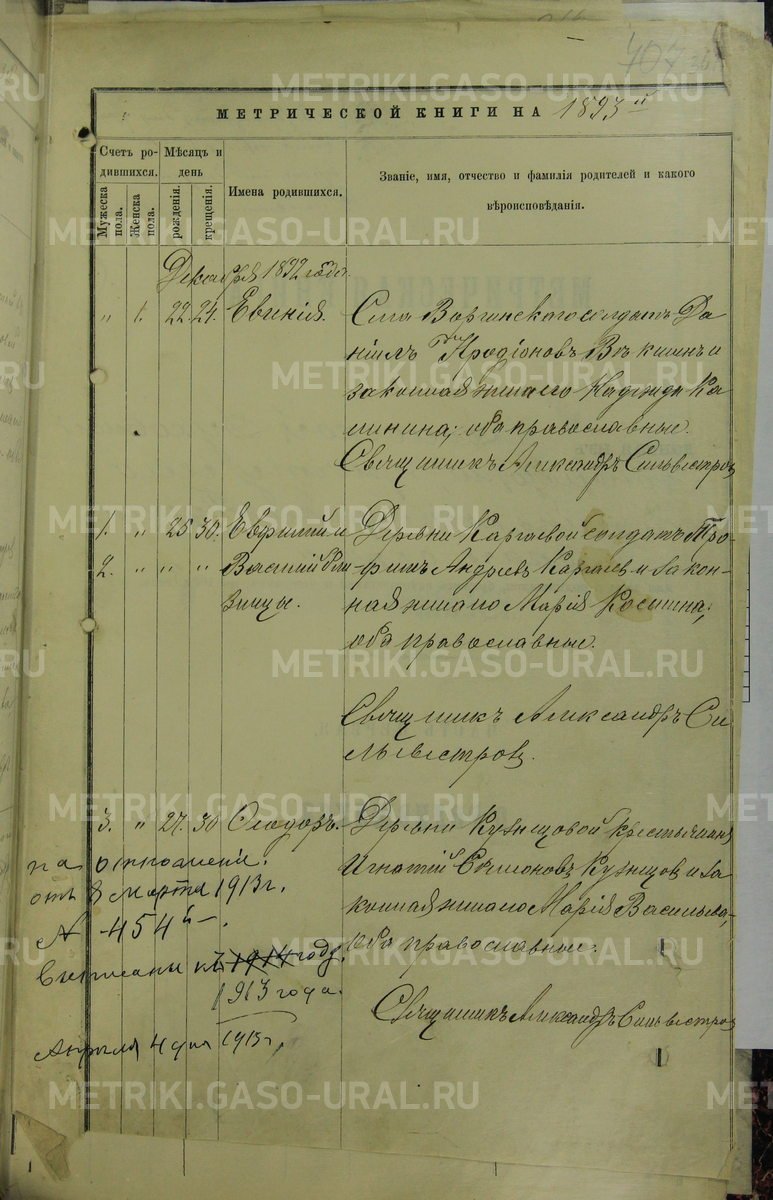 407
METRIKI.GASO-URAL.RU
МЕТРИЧЕСКОЙ КНИГИ НА 1893й
Счетъ родившихся.
Мужеска пола.
Женска пола.
Мѣсяцъ и день
рожденія.
крещенія.
Имена родившихся.
Званіе, имя, отчество и фамилія родителей и какого
вѣроисповѣданія.
Декабря 1892 года.
„ 1. 22. 24. Евгенія. Села солдатъ Да-
ніилъ Иродіоновъ и
законная жена его Надежда Ка-
линина; оба православные.
Священникъ Александръ Сильвестровъ
1. „ 25 30. Евфимій и Деревни Каргаевой солдатъ Тро-
2. „ „ „ Василій бли- фимъ Андреевъ Каргаев и закон-
зницы. ная жена его Марія Космина;
оба православные.
Священникъ Александръ Си-
львестровъ.
3. „ 27. 30 Ѳеодоръ. Деревни Кузнецовой крестьянинъ
Игнатій Семионовъ Кузнецов и за-
конная жена его Марія Васильева,
оба православные.
Священникъ Александръ Сильвестровъ
на отношеніи
отъ 8 марта 1913 г.
№ -454й-.
1914 году.
1913 года.
Апрѣля 4 дня 1913 г.